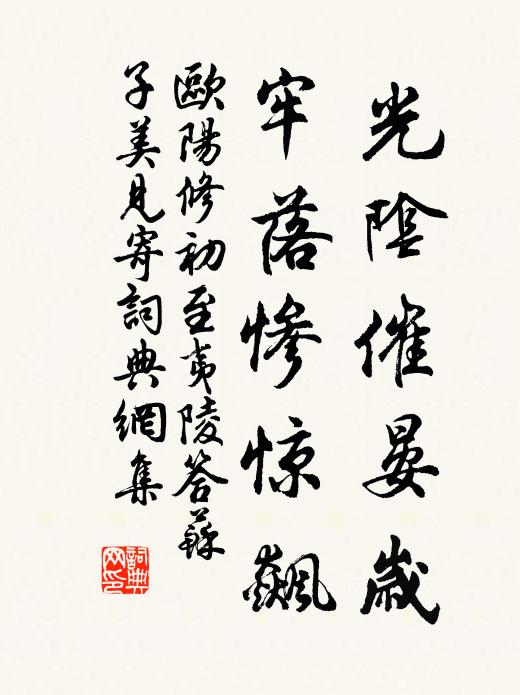 光陰催晏歲
牢落慘惊飆
歐陽修初至夷陵答蘇
子美見寄詞典網集
詞典
网印